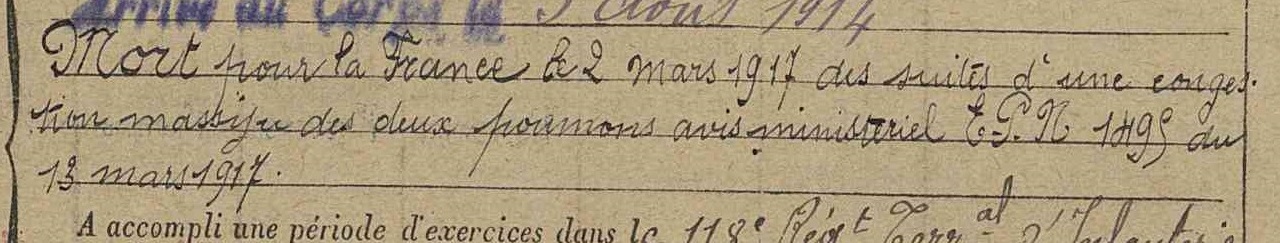 Arrivé au Corps le 3 Août 1914
Mort pour la France le 2 mars 1917 des suites d'une conges-
tion massive des deux poumons avis ministériel E.P.N 1495 du
13 mars 1917.
A accompli une période d'exercices dans le 118e Régt Terr.al d'Infanterie